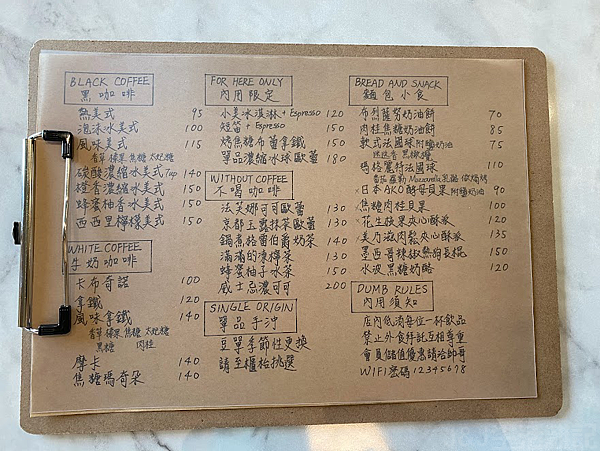 BLACK COFFEE
黑咖啡
熱美式 95
泡沫冰美式 100
風味美式 115
香草 榛果 焦糖 太妃糖
碳酸濃縮冰美式 Top 140
橙香濃縮冰美式 150
蜂蜜柚香冰美式 150
西西里檸檬美式 150
WHITE COFFEE
牛奶咖啡
卡布奇諾 100
拿鐵 120
風味拿鐵 140
香草 榛果 焦糖 太妃糖
黑糖 肉桂
摩卡 140
焦糖瑪奇朵 140
FOR HERE ONLY
內用限定
小美冰淇淋 + Espresso 120
短笛 + Espresso 150
烤焦糖布蕾拿鐵 150
單品濃縮冰球歐蕾 180
WITHOUT COFFEE
不喝咖啡
法芙娜可可歐蕾 130
京都玉露抹茶歐蕾 130
鍋煮格雷伯爵奶茶 140
滿滿的凍檸茶 150
蜂蜜柚子冰茶 150
威士忌濃可可 200
SINGLE ORIGIN
單品手沖
豆單季節性更換
請至櫃枱挑選
BREAD AND SNACK
麵包小食
布列薩努奶油餅 70
肉桂焦糖奶油餅 85
軟式法國球 附鹽奶油 75
瑪格麗特法國球 110
日本AKO酵母貝果 附鹽奶油 90
焦糖肉桂貝果 100
花生腰果夾心酥派 120
美乃滋肉鬆夾心酥派 135
墨西哥辣椒熱狗長棍 150
水波黑糖奶酪 120
DUMB RULES
內用須知
店內低消每位一杯飲品
禁止外食拜託互相尊重
會員儲值優惠請洽帥哥
WIFI密碼 12345678